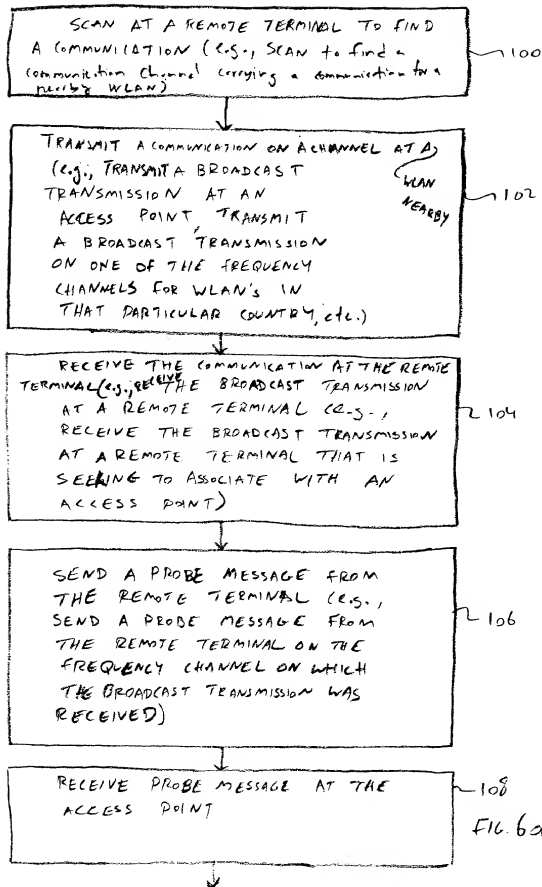 SCAN AT A REMOTE TERMINAL TO FIND
A COMMUNICATION (e.g., SCAN to find a
communication channel carrying a communication for a
nearby WLAN)
100
TRANSMIT A COMMUNICATION ON A CHANNEL AT A
WLAN
NEARBY
(e.g., TRANSMIT A BROADCAST
TRANSMISSION AT AN
ACCESS POINT, TRANSMIT
A BROADCAST TRANSMISSION
ON ONE OF THE FREQUENCY
CHANNELS FOR WLAN's IN
THAT PARTICULAR COUNTRY, etc.)
102
RECEIVE THE COMMUNICATION AT THE REMOTE
TERMINAL (e.g., RECEIVE THE BROADCAST TRANSMISSION
AT A REMOTE TERMINAL (e.g.,
RECEIVE THE BROADCAST TRANSMISSION
AT A REMOTE TERMINAL THAT IS
SEEKING TO ASSOCIATE WITH AN
ACCESS POINT)
104
SEND A PROBE MESSAGE FROM
THE REMOTE TERMINAL (e.g.,
SEND A PROBE MESSAGE FROM
THE REMOTE TERMINAL ON THE
FREQUENCY CHANNEL ON WHICH
THE BROADCAST TRANSMISSION WAS
RECEIVED)
106
RECEIVE PROBE MESSAGE AT THE
ACCESS POINT
108
FIG. 6a